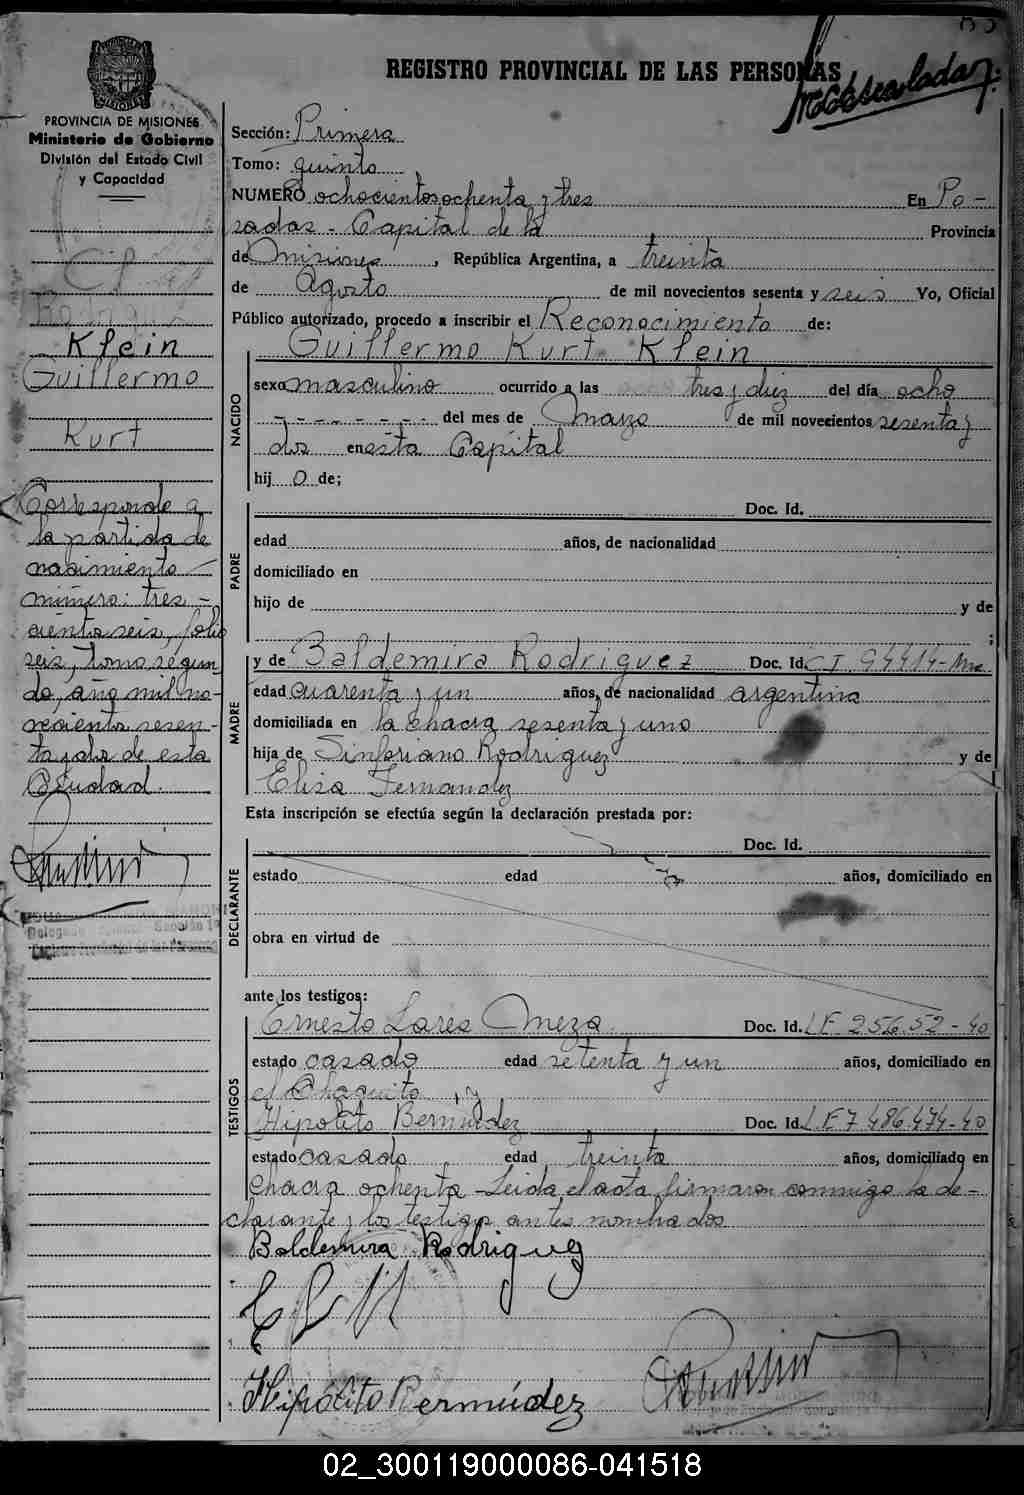 83
REGISTRO PROVINCIAL DE LAS PERSONAS
PROVINCIA DE MISIONES
Ministerio de Gobierno
División del Estado Civil
y Capacidad
Klein
Guillermo
Kurt
Corresponde a
la partida de
nacimiento
número: tres-
cientos seis, folio
seis, tomo segun
do, año mil no-
vecientos sesen-
ta y dos de esta
Ciudad.
Sección: Primera
Tomo: quinto
NUMERO ochocientosochenta y tres En Po-
sadas - Capital de la Provincia
de Misiones, República Argentina, a treinta
de Agosto de mil novecientos sesenta y seis Yo, Oficial
Público autorizado, procedo a inscribir el Reconocimiento de:
Guillermo Kurt Klein
NACIDO
sexo masculino ocurrido a las tres y diez del día ocho
- - - - - - - del mes de Mayo de mil novecientos sesenta y
dos en esta Capital
hij o de;
PADRE
Doc. Id.
edad años, de nacionalidad
domiciliado en
hijo de y de
;
MADRE
y de Baldemira Rodriguez Doc. Id. C I 94414-Mnes
edad cuarenta y un años, de nacionalidad argentina
domiciliada en la chacra sesenta y uno
hija de Sinforiano Rodriguez y de
Elisa Fernandez
Esta inscripción se efectúa según la declaración prestada por:
DECLARANTE
Doc. Id.
estado edad años, domiciliado en
obra en virtud de
ante los testigos:
TESTIGOS
Ernesto Lares Meza Doc. Id. L E 25652-40
estado casado edad setenta y un años, domiciliado en
el Chaquito, y
Hipolito Bermudez Doc. Id. L E 7.486.474-40
estado casado edad treinta años, domiciliado en
chacra ochenta - Leida el acta firmaron conmigo la de-
clarante y los testigos antes nombrados
Baldemira Rodriguez
Hipólito Bermúdez
02_300119000086-041518